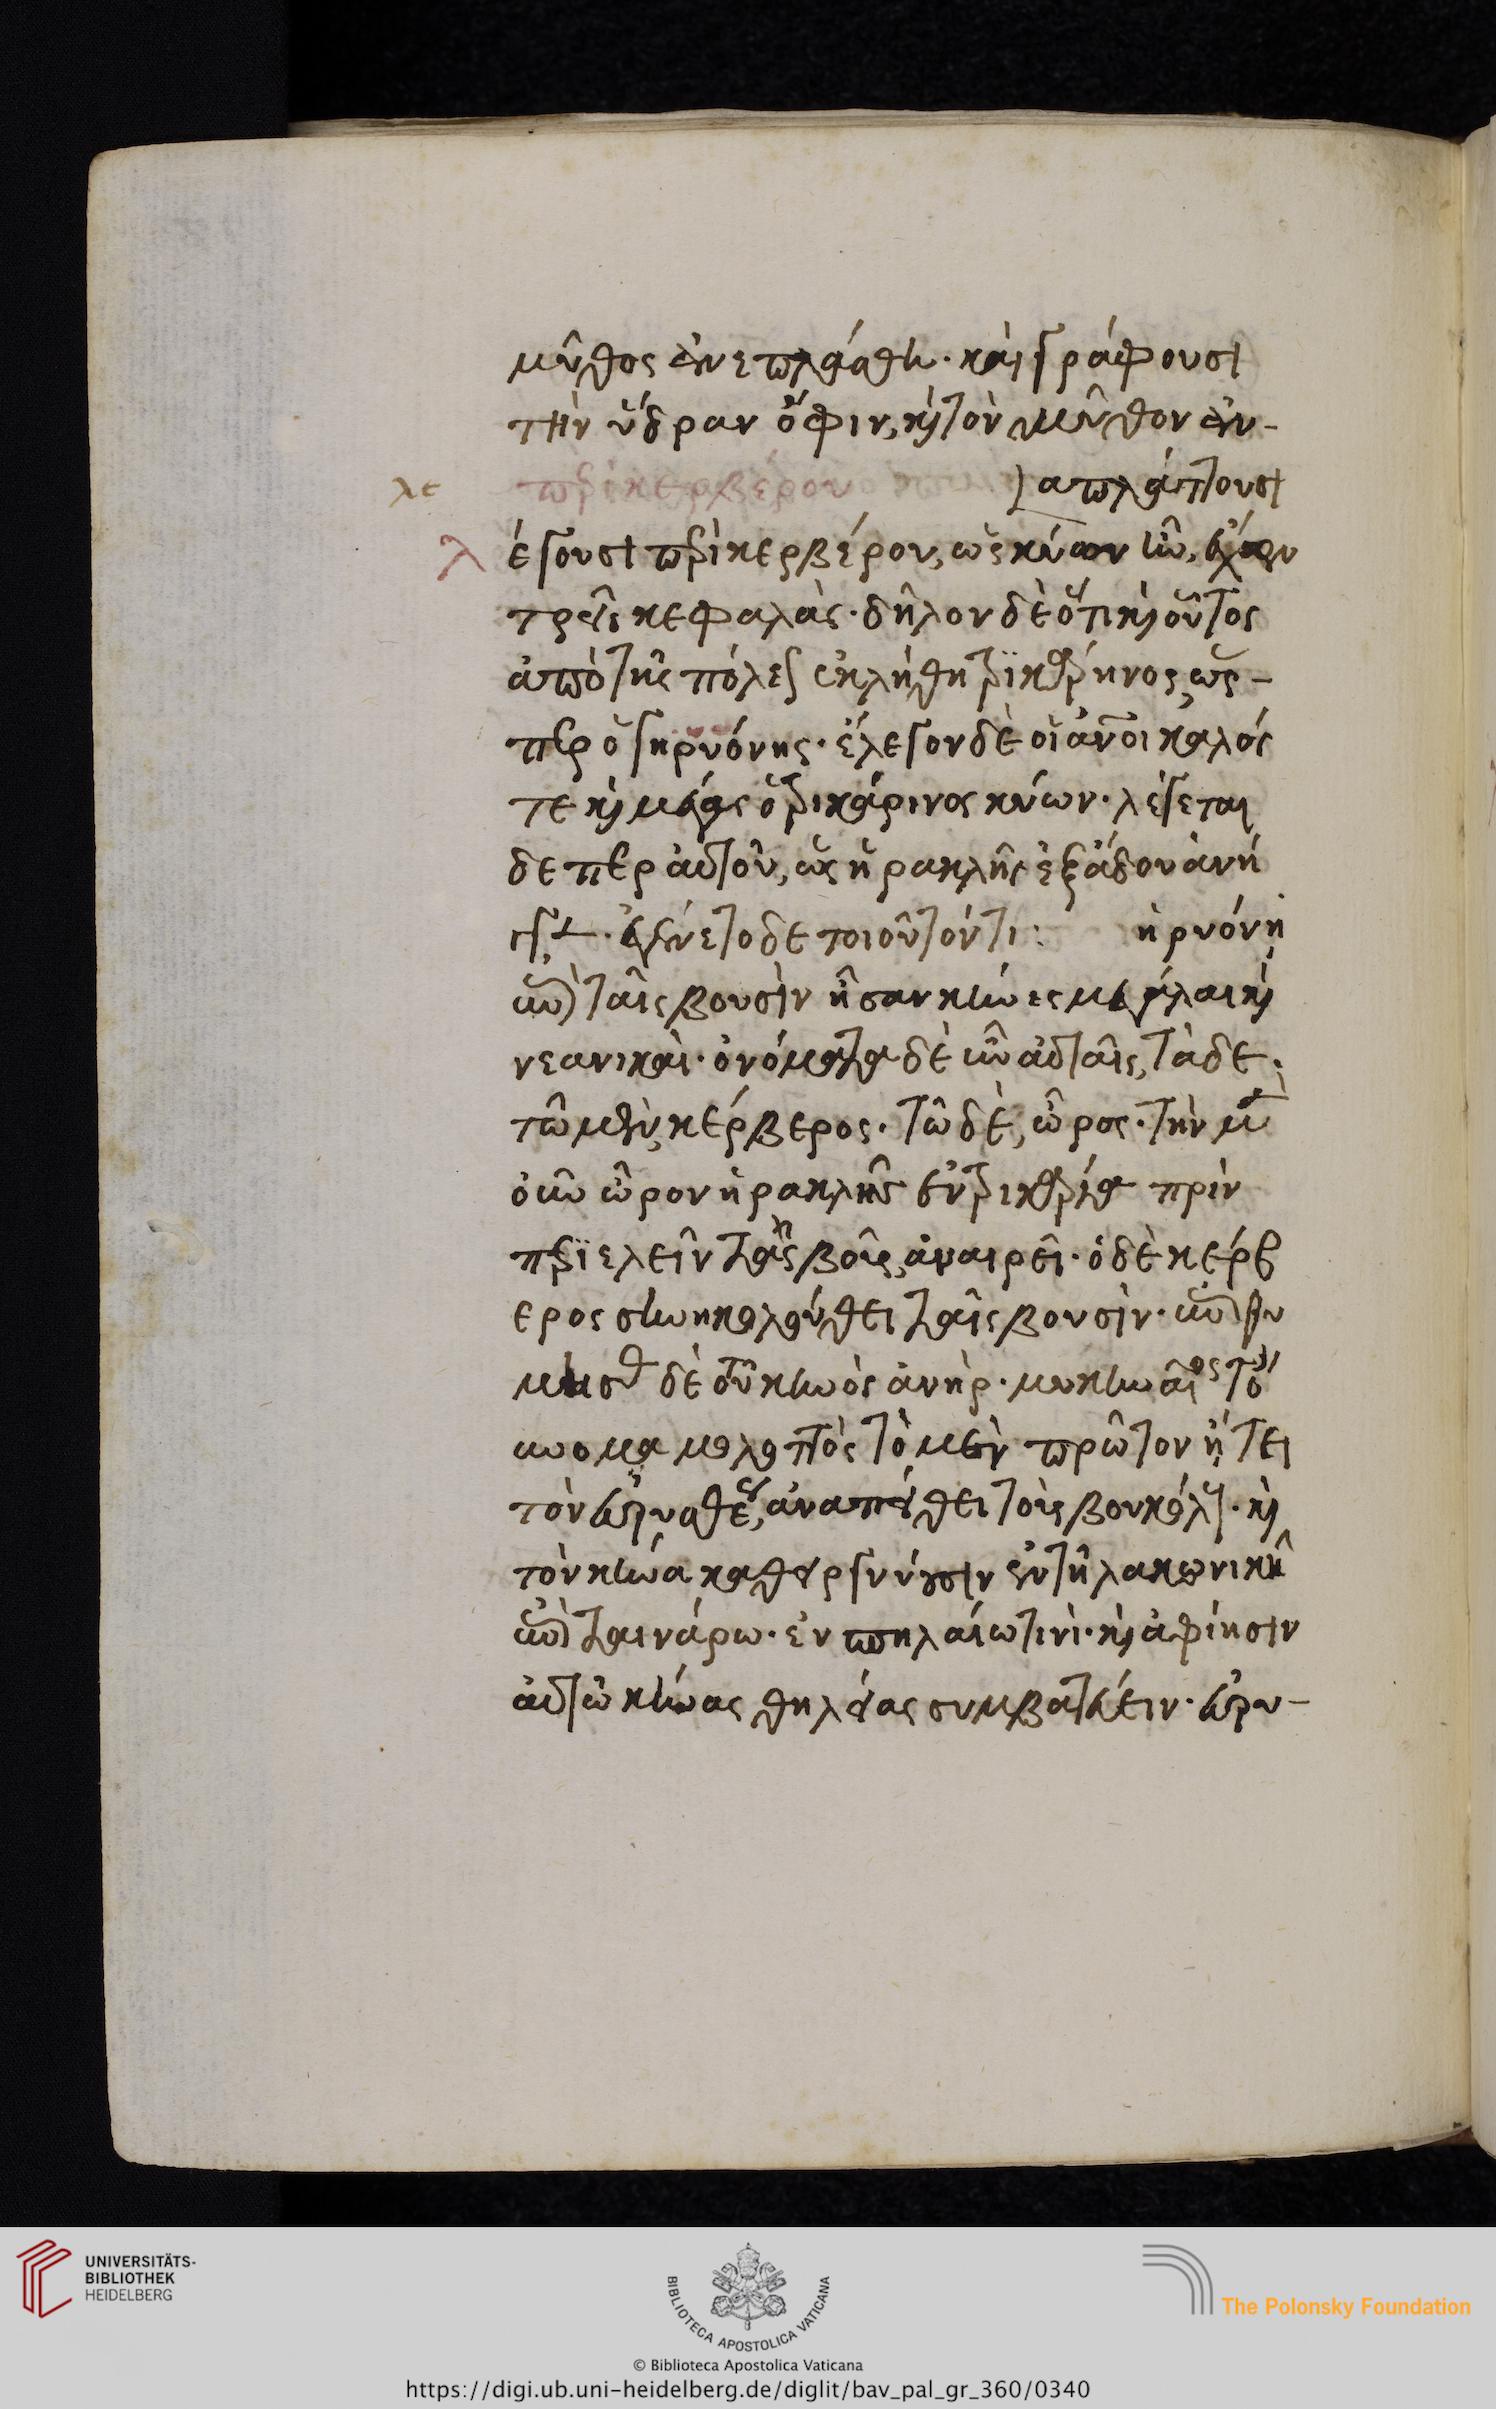 μῦθος ἀνεπλάσθη. καὶ γράφουσι
τὴν ὕδραν ὄφιν, καὶ τὸν μῦθον ἀν-
λε περὶ κερβέρου απλάττουσι
λέγουσι περὶ κερβέρου, ὡς κύων ἦν, ἔχων
τρεῖς κεφαλὰς. δῆλον δὲ ὅτι καὶ οὗτος
ἀπὸ τῆς πόλεως ἐκλήθη τρικάρηνος, ὥς-
περ ὁ γηρυόνης. ἔλεγον δὲ οἱ ἄνοι καλός
τε καὶ μέγας ὁ τρικάρινος κύων. λέγεται
δε περ αὐτοῦ, ὡς ἡρακλῆς ἐξ ἅδου ἀνή
γαγεν. ἐγένετο δε τοιοῦτόν τι: ἡρυόνῃ
ἐπὶ ταῖς βουσὶν ἦσαν κύνες μεγάλαι καὶ
νεανικαὶ. ὀνόματα δὲ ἦν αὐταῖς, τάδε.
τῶ μὲν, κέρβερος. τῶ δὲ, ὦρος. τὴν μ
οὖν ὦρον ἡρακλῆς ἐν τρικαρίᾳ πρὶν
περιελεῖν τὰς βοῦς, ἀναιρεῖ. ὁ δὲ κέρβ
ερος συνηκολούθει ταῖς βουσὶν. ἐπιθυ
μήσας δὲ τοῦ κυνὸς ἀνὴρ. μυκηναῖος τοὔ
νομα μολοττὸς τὸ μὲν πρῶτον ᾔτει
τὸν εὐρυσθέα, ἀναπείθει τοὺς βουκόλους. καὶ
τὸν κύνα καθειργνύουσιν ἐν τῇ λακωνικῇ
ἐπὶ ταινάρω. ἐν σπηλαίω τινὶ. καὶ ἀφίησιν
αὐτῶ κύνας θηλείας συμβατεύειν. εὐρυ-
UNIVERSITÄTS-
BIBLIOTHEK
HEIDELBERG
BIBLIOTECA APOSTOLICA VATICANA
The Polonsky Foundation
© Biblioteca Apostolica Vaticana
https://digi.ub.uni-heidelberg.de/diglit/bav_pal_gr_360/0340